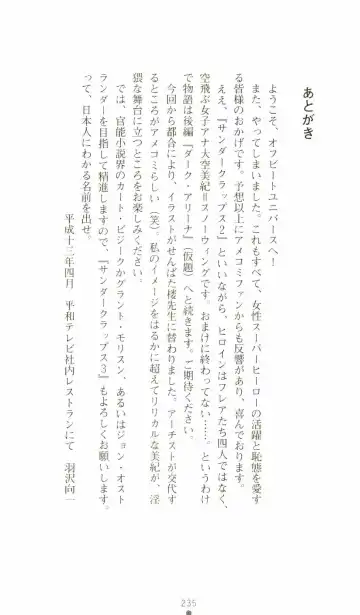 あとがき
ようこそ、オフビートユニバースへ！
また、やってしまいました。これもすべて、女性スーパーヒーローの活躍と恥態を愛す
る皆様のおかげです。予想以上にアメコミファンからも反響があり、喜んでおります。
ええ、『サンダークラップス2』といいながら、ヒロインはフレアたち四人ではなく、
空飛ぶ女子アナ大空美紀＝スノーウィングです。おまけに終わってない……。というわけ
で物語は後編『ダーク・アリーナ』（仮題）へと続きます。ご期待ください。
今回から都合により、イラストがせんばた楼先生に替わりました。アーチストが交代す
るところがアメコミらしい（笑）。私のイメージをはるかに超えてリリカルな美紀が、淫
猥な舞台に立つところをお楽しみください。
では、官能小説界のカート・ビジークかグラント・モリスン、あるいはジョン・オスト
ランダーを目指して精進しますので、『サンダークラップス3』もよろしくお願いします。
って、日本人にわかる名前を出せ。
平成十三年四月　平和テレビ社内レストランにて　羽沢向一
235